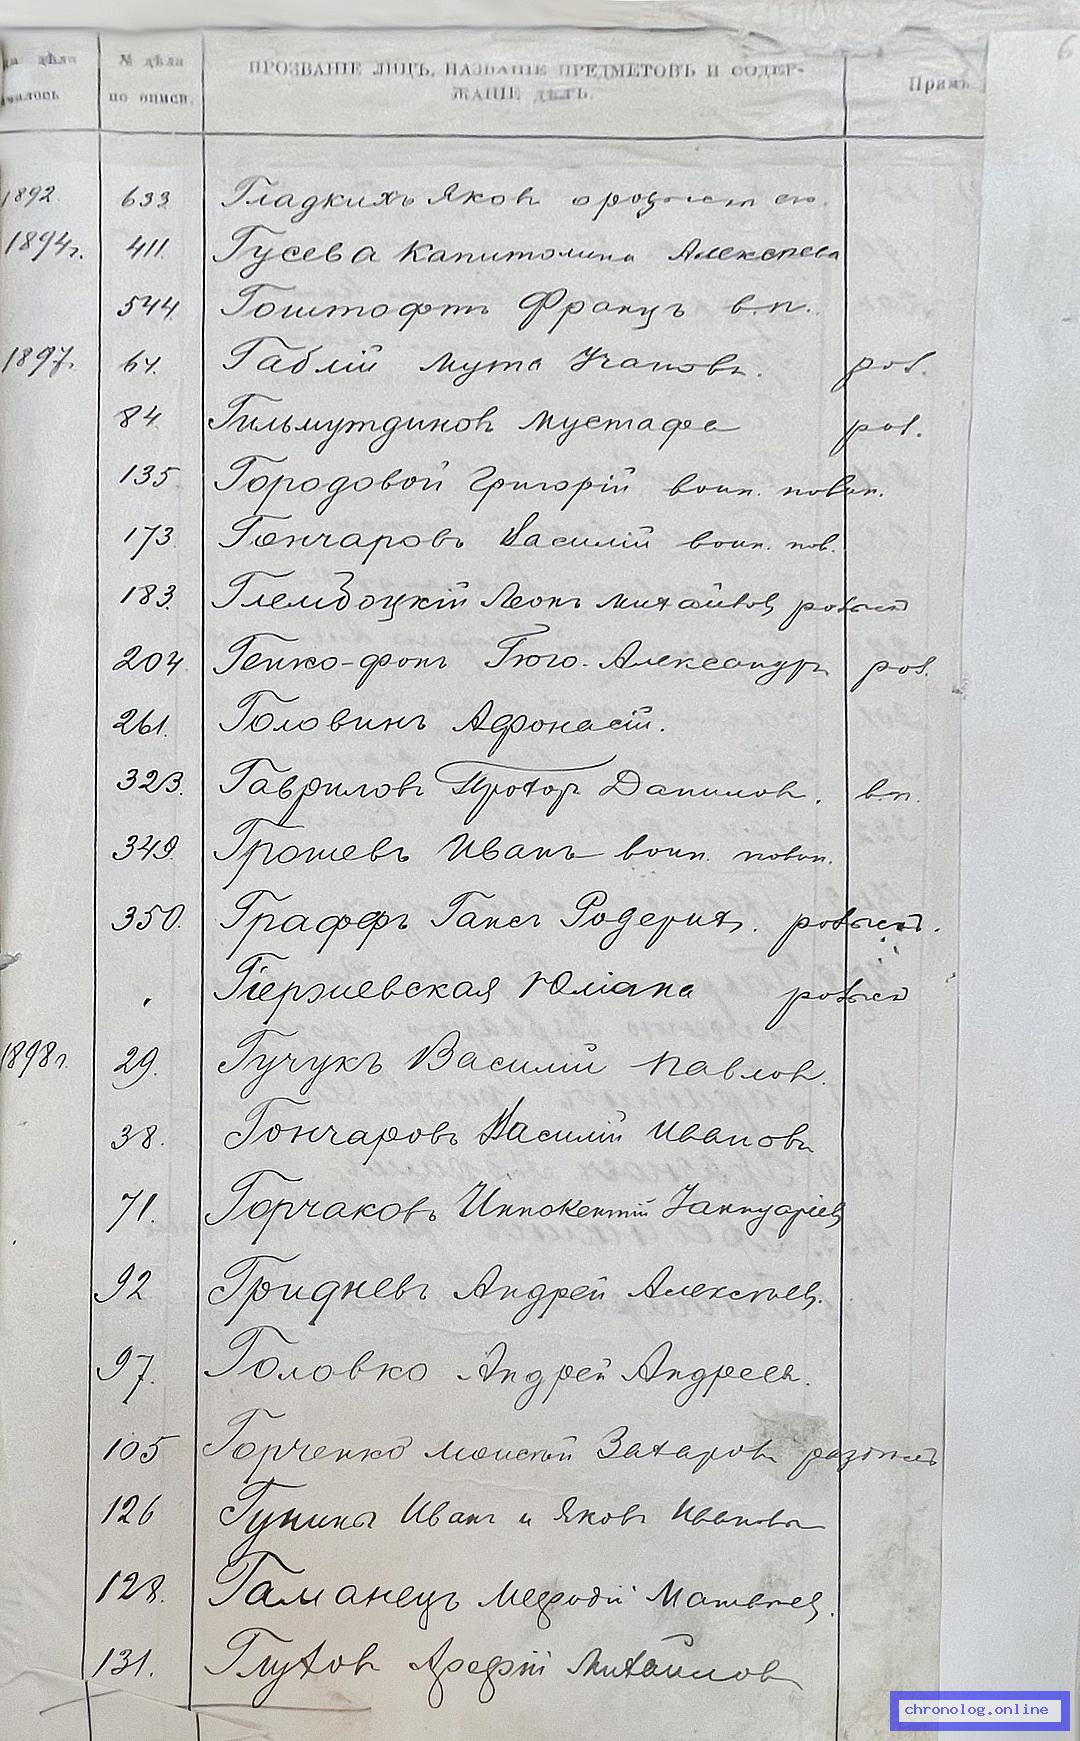 дѣла № дѣла ПРОЗВАНІЕ ЛИЦЪ, НАЗВАНІЕ ПРЕДМЕТОВЪ И СОДЕР-
по описи. ЖАНІЕ ДѢЛЪ. Примѣ
1892. 633 Гладкихъ Яковъ о розыск его.
1894г. 411. Гусева Капитолина Алексѣева
544 Гоштофтъ Францъ в.п.
1897г. 64. Габлій Мута роз.
84 Гильмутдиновъ Мустафа роз.
135 Городовой Григорій воин. повин.
173 Гончаровъ Василій воин. пов.
183. Глембоцкій Леонъ Михайлов розыск
204 Генко-фонъ Александръ роз.
261. Головинъ Афонасій.
323. Гавриловъ Прохор Данилов. в.п.
349. Грошевъ Иванъ воин. повин.
350. Граффъ Гансъ Родерих. розыск.
Юліана розыск
1898г. 29. Гучукъ Василій Павлов.
38. Гончаровъ Василій Ивановъ
71. Горчаковъ Иннокентій Іаннуаріев
92 Гридневъ Андрей Алексѣев.
97. Головко Андрей Андреев.
105 Горченко Моисей Захаровъ розыск
126 Гунинъ Иванъ и Яковъ Ивановы
128. Гаманецъ Мефодій Матвѣев.
131. Глуховъ Арефій Михайловъ
chronolog.online